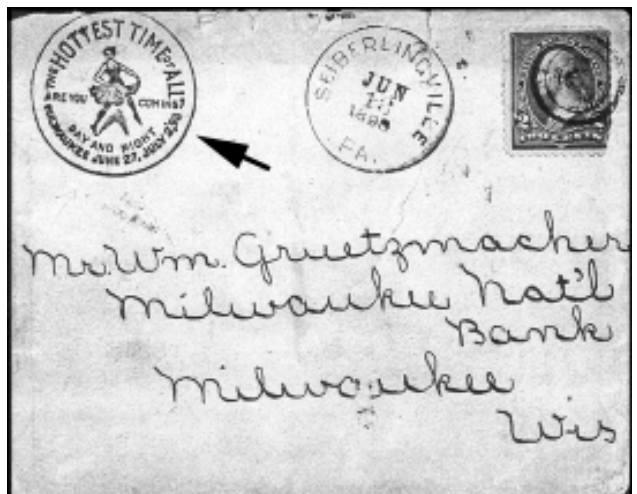 THE HOTTEST TIME OF ALL
ARE YOU COMING?
DAY AND NIGHT
MILWAUKEE JUNE 27, JULY 2, 98
SEIBERLINGVILLE
JUN
1898
PA.
Mr. Wm. Gruetzmacher
Milwaukee Nat'l
Bank
Milwaukee
Wis